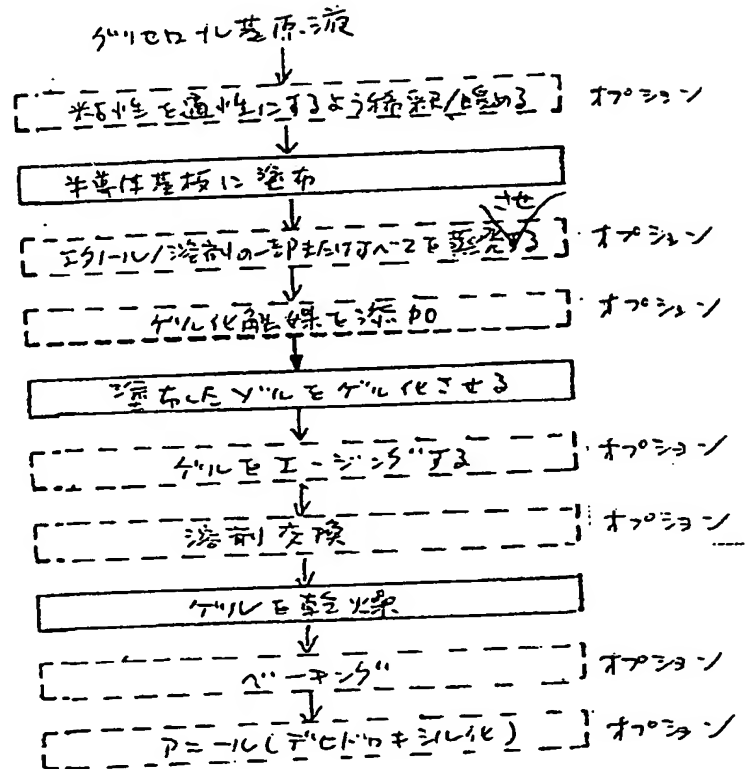 グリセロール基原液
粘性を適性にするよう希釈/暖める オプション
半導体基板に塗布
させ
エタノール/溶剤の一部またはすべてを蒸発する オプション
ゲル化触媒を添加 オプション
塗布したゾルをゲル化させる
ゲルをエージングする オプション
溶剤交換 オプション
ゲルを乾燥
ベーキング オプション
アニール(デヒドロキシル化) オプション